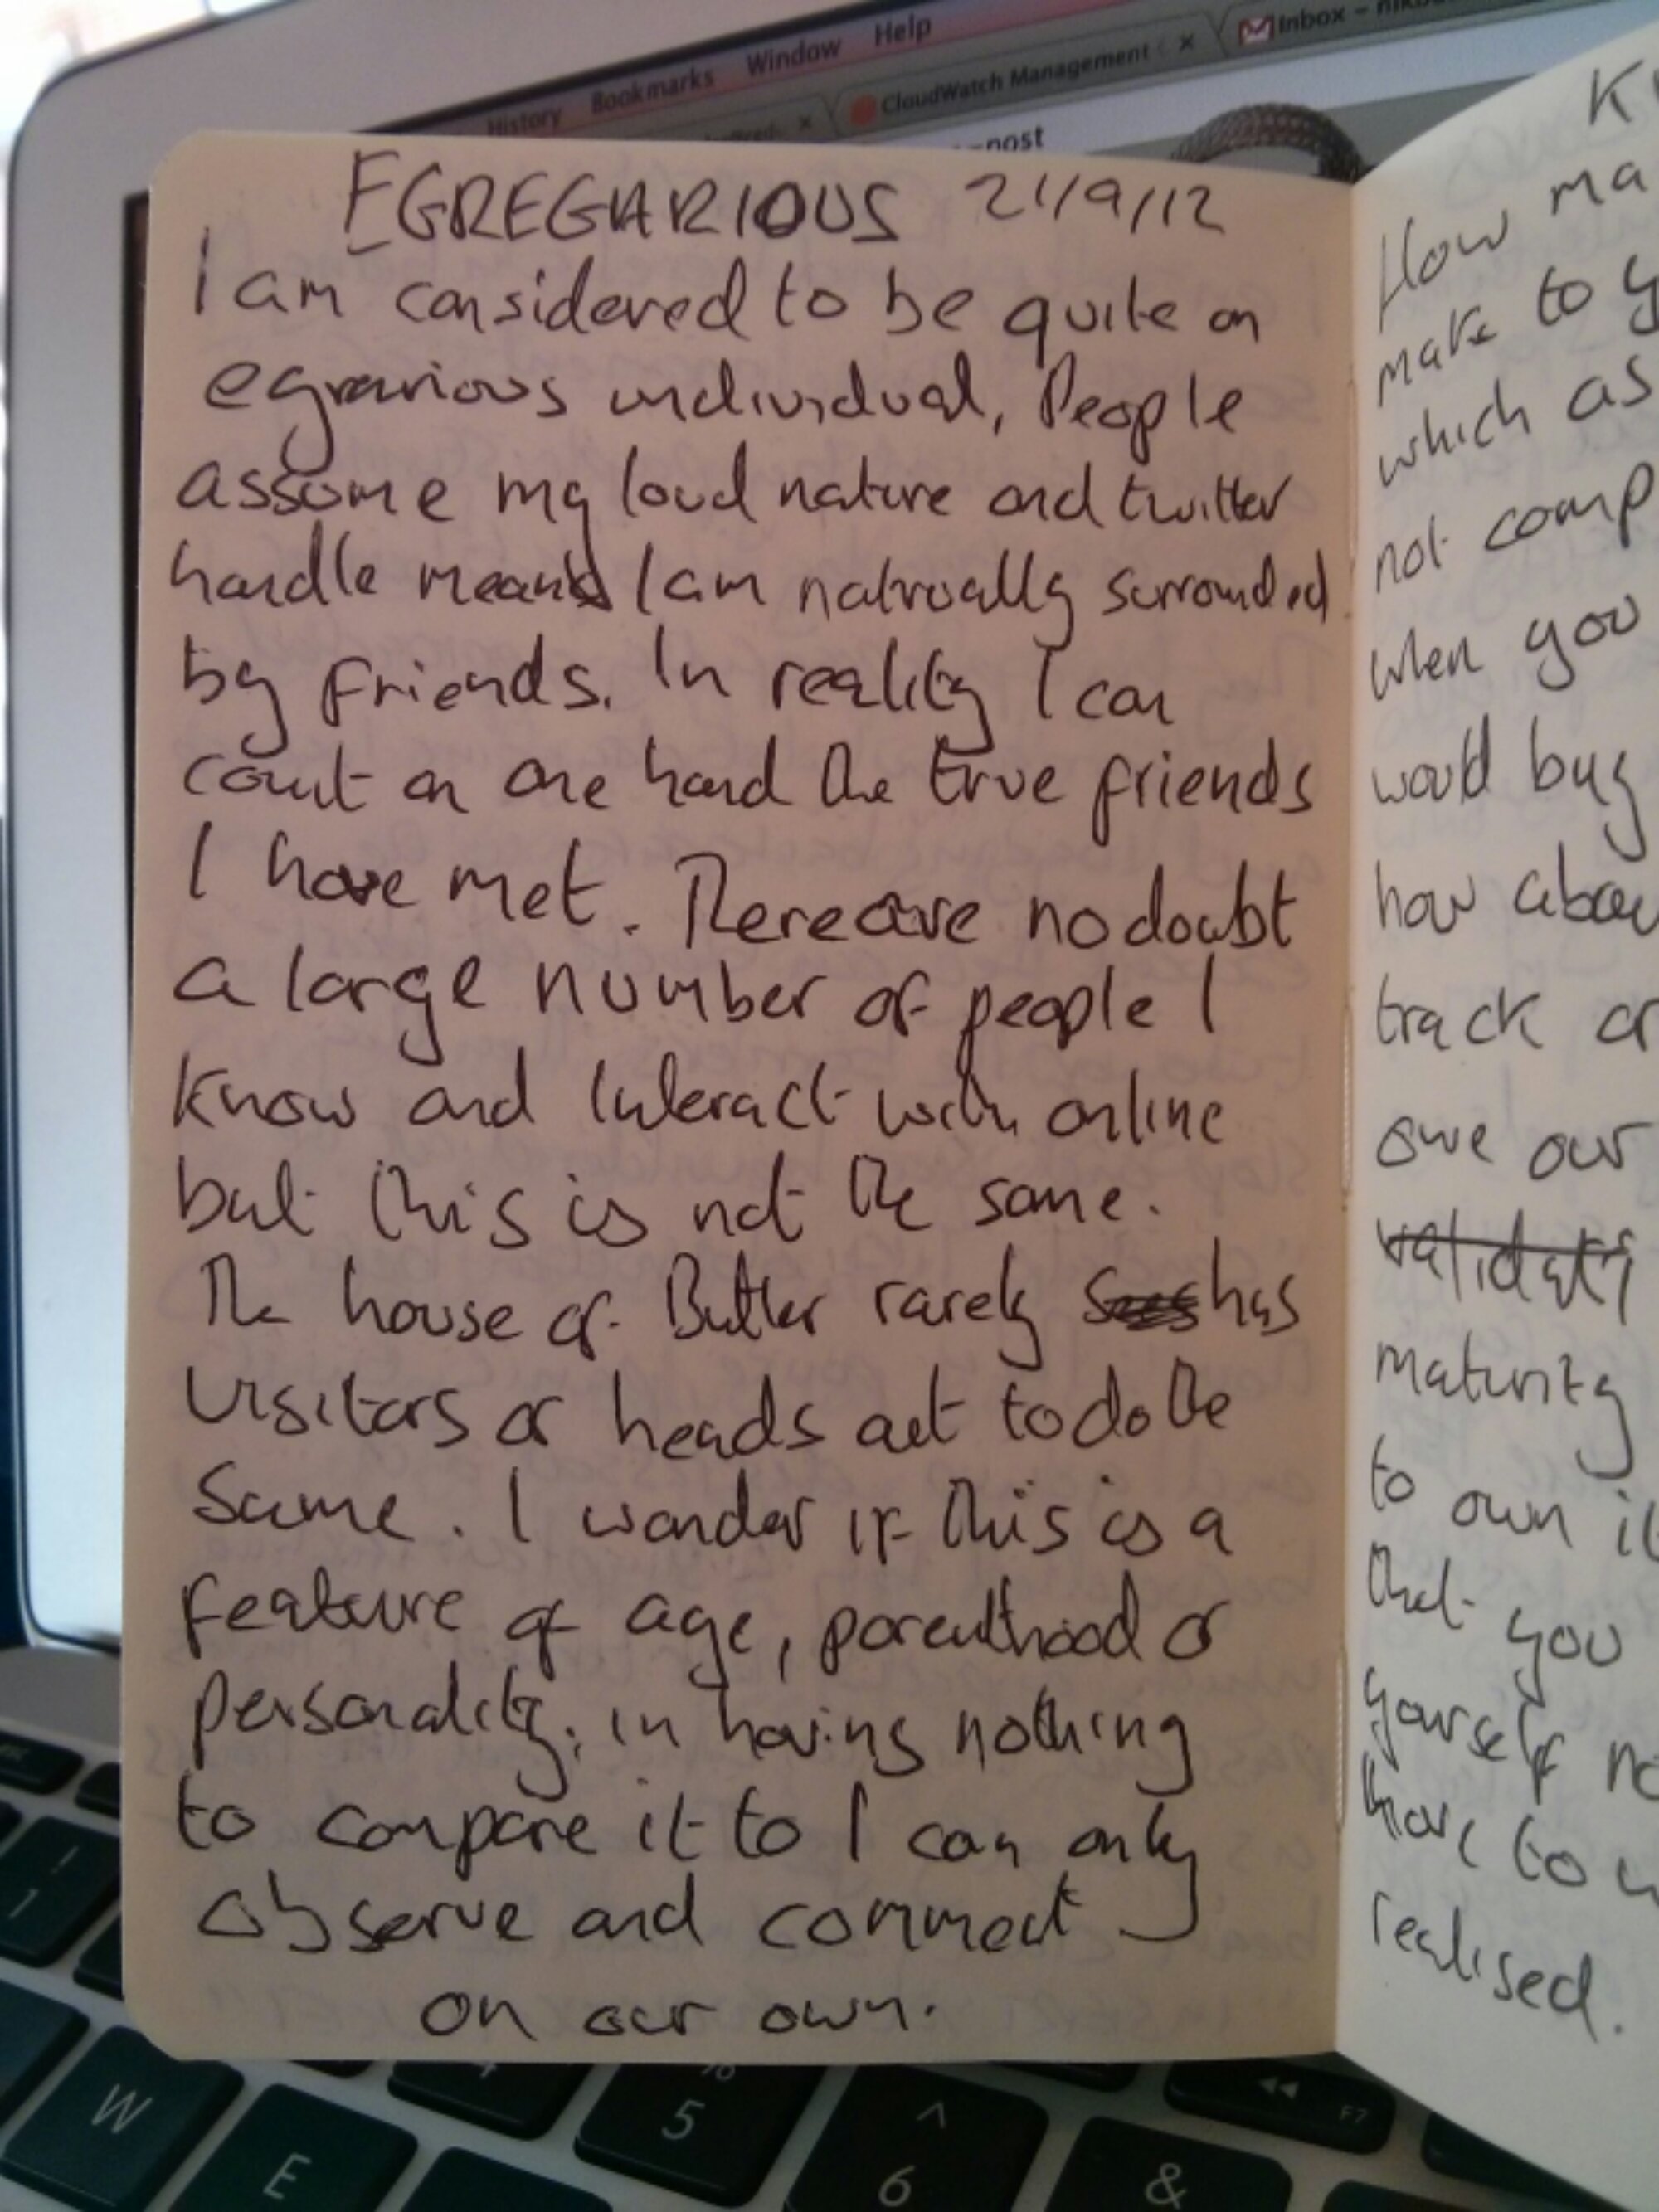 History Bookmarks Window Help
CloudWatch Management
Inbox –
post
EGREGARIOUS 21/9/12
I am considered to be quite an
egrarious individual, People
assume my loud nature and twitter
handle means I am natrually surrounded
by friends. In reality I can
count on one hand the true friends
I have met. There are no doubt
a large number of people I
know and interact with online
but this is not the same.
The house of Butler rarely has
visitors or heads out to do the
same. I wonder if this is a
feature of age, parenthood or
personality, in having nothing
to compare it to I can only
observe and comment
on our own.
How ma
make to y
which as
not comp
when you
would buy
how
track or
owe our
maturity
to own it
that you
yourself no
have to
realised.
1
W
E
5
6
&
F7